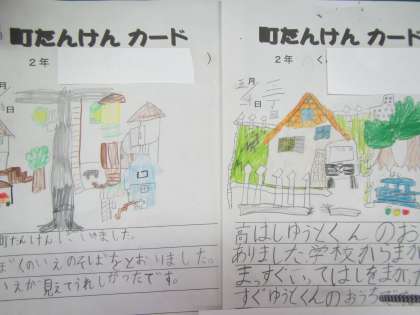 町たんけん カード
2年
町たんけんしていました。
ぼくのいえのそばをとおりました。
いえが見えてうれしかったです。
町たんけん カード
2年 く
月
日
高はしゆうとくんのお
ありました学校からまが
まっすぐいってはしをまが
すぐゆうとくんのおうち